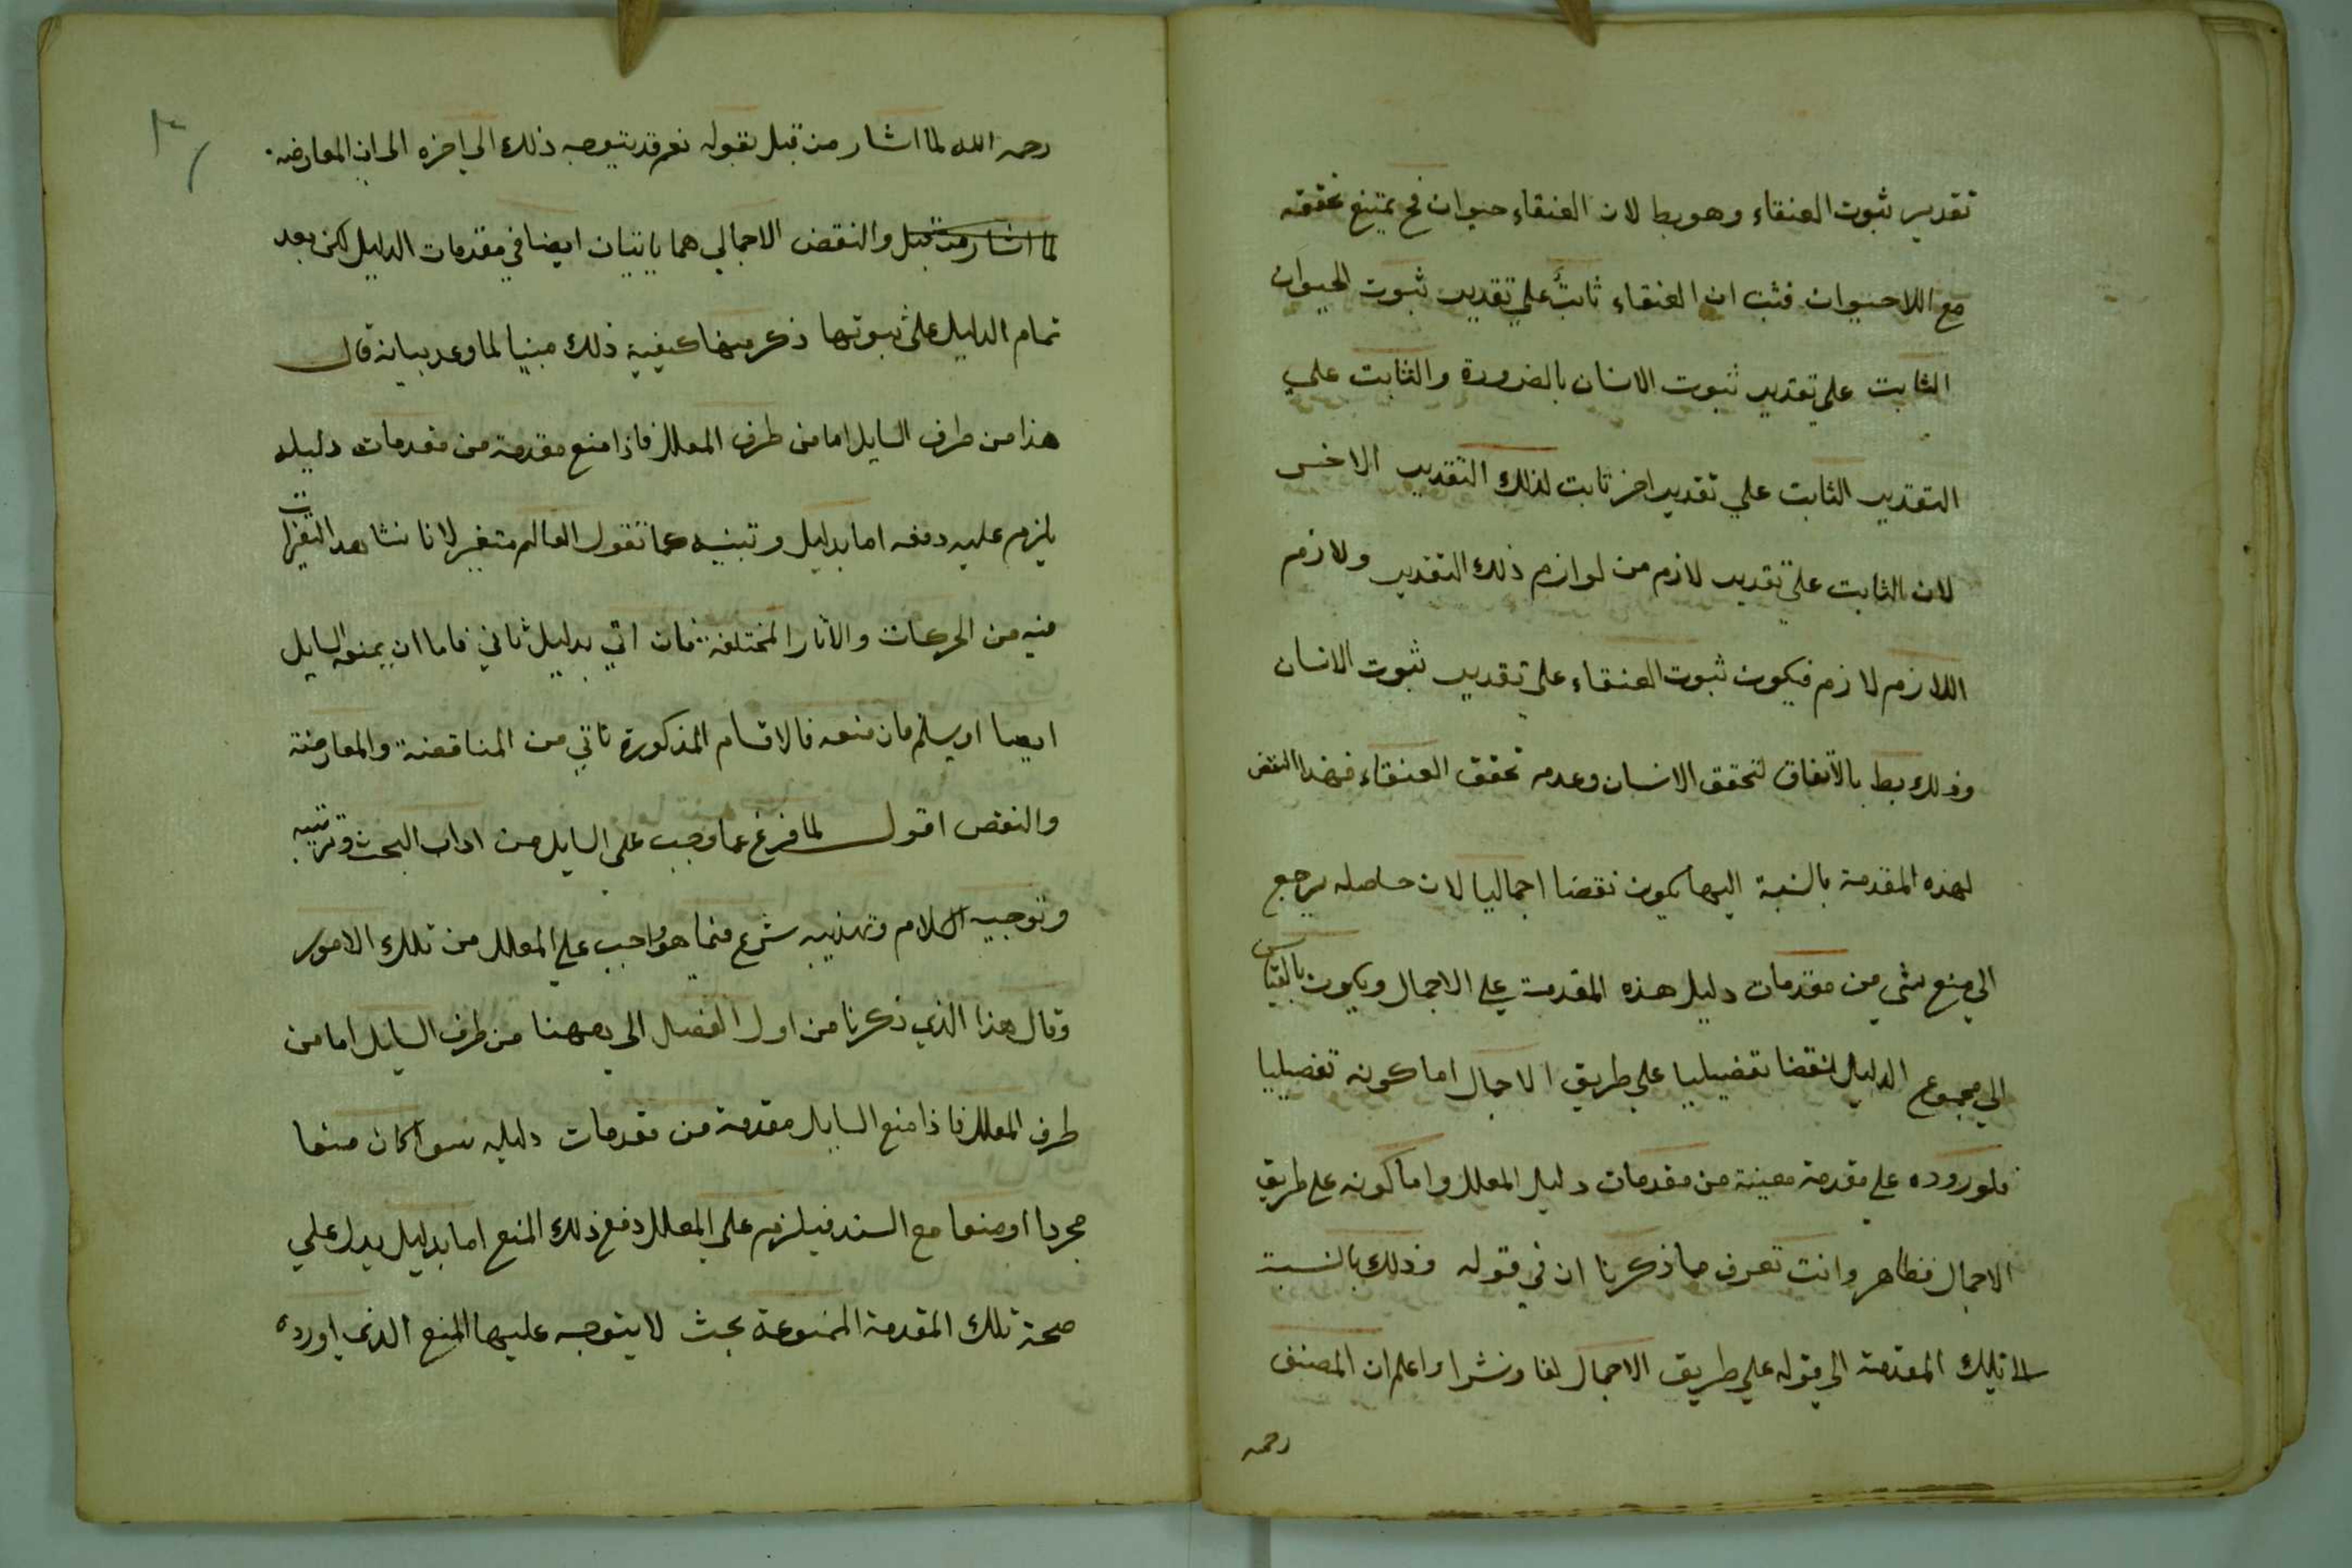 تقدير ثبوت العنقاء وهو بط لان العنقاء حيوان فح يمتنع تحققه
مع اللاحيوان فثبت ان العنقاء ثابت علي تقدير ثبوت الحيوان
الثابت علي تقدير ثبوت الانسان بالضرورة والثابت علي
التقدير الثابت علي تقدير اخر ثابت لذلك التقدير الاخر
لان الثابت علي تقدير لازم من لوازم ذلك التقدير ولازم
اللازم لازم فيكون ثبوت العنقاء على تقدير ثبوت الانسان
وذلك بط بالاتفاق لتحقق الانسان وعدم تحقق العنقاء فهذا النقض
لهذه المقدمة بالنسبة اليها يكون نقضا اجماليا لان حاصله يرجع
الي منع شي من مقدمات دليل هذه المقدمة علي الاجمال ويكون بالقياس
الي مجموع الدليل نقضا تفصيليا علي طريق الاجمال اما كونه تفصيليا
فلوروده علي مقدمة معينة من مقدمات دليل المعلل واما كونه علي طريق
الاجمال فظاهر وانت تعرف مما ذكرنا ان في قوله وذلك بالنسبة
الا تلك المقدمة الي قوله علي طريق الاجمال لفا ونشرا واعلم ان المصنف
رحمه
رحمه الله لما اشار من قبل بقوله نعم قد يتوجه ذلك الي اخره الى ان المعارضه
لما اشار من قبل والنقض الاجمالي هما ياتيان ايضا في مقدمات الدليل لكن بعد
تمام الدليل علي ثبوتها ذكر ههنا كيفية ذلك مبنيا لما وعد ببيانه قال
هذا من طرف السايل اما من طرف المعلل فاذا منع مقدمة من مقدمات دليله
يلزم عليه دفعه اما بدليل وتبنيه كما تقول العالم متغير لانا نشاهد التغيرات
فيه من الحركات والآثار المختلفة فان اتي بدليل ثاني فاما ان يمنعه السايل
ايضا او يسلم فان منعه فالاقسام المذكورة تاتي من المناقضة والمعارضة
والنقض اقول لما فرغ عما وجب على السايل من اداب البحث وترتيبه
وتوجيه الكلام وتهذيبه شرع فيما هو واجب علي المعلل من تلك الامور
وقال هذا الذي ذكرنا من اول الفصل الي ههنا من طرف السايل اما من
طرف المعلل فاذا منع السايل مقدمة من مقدمات دليله سوا كان منعا
مجردا او منعا مع السند فيلزم علي المعلل دفع ذلك المنع اما بدليل يدل علي
صحة تلك المقدمة الممنوعة بحيث لا يتوجه عليها المنع الذي اورده